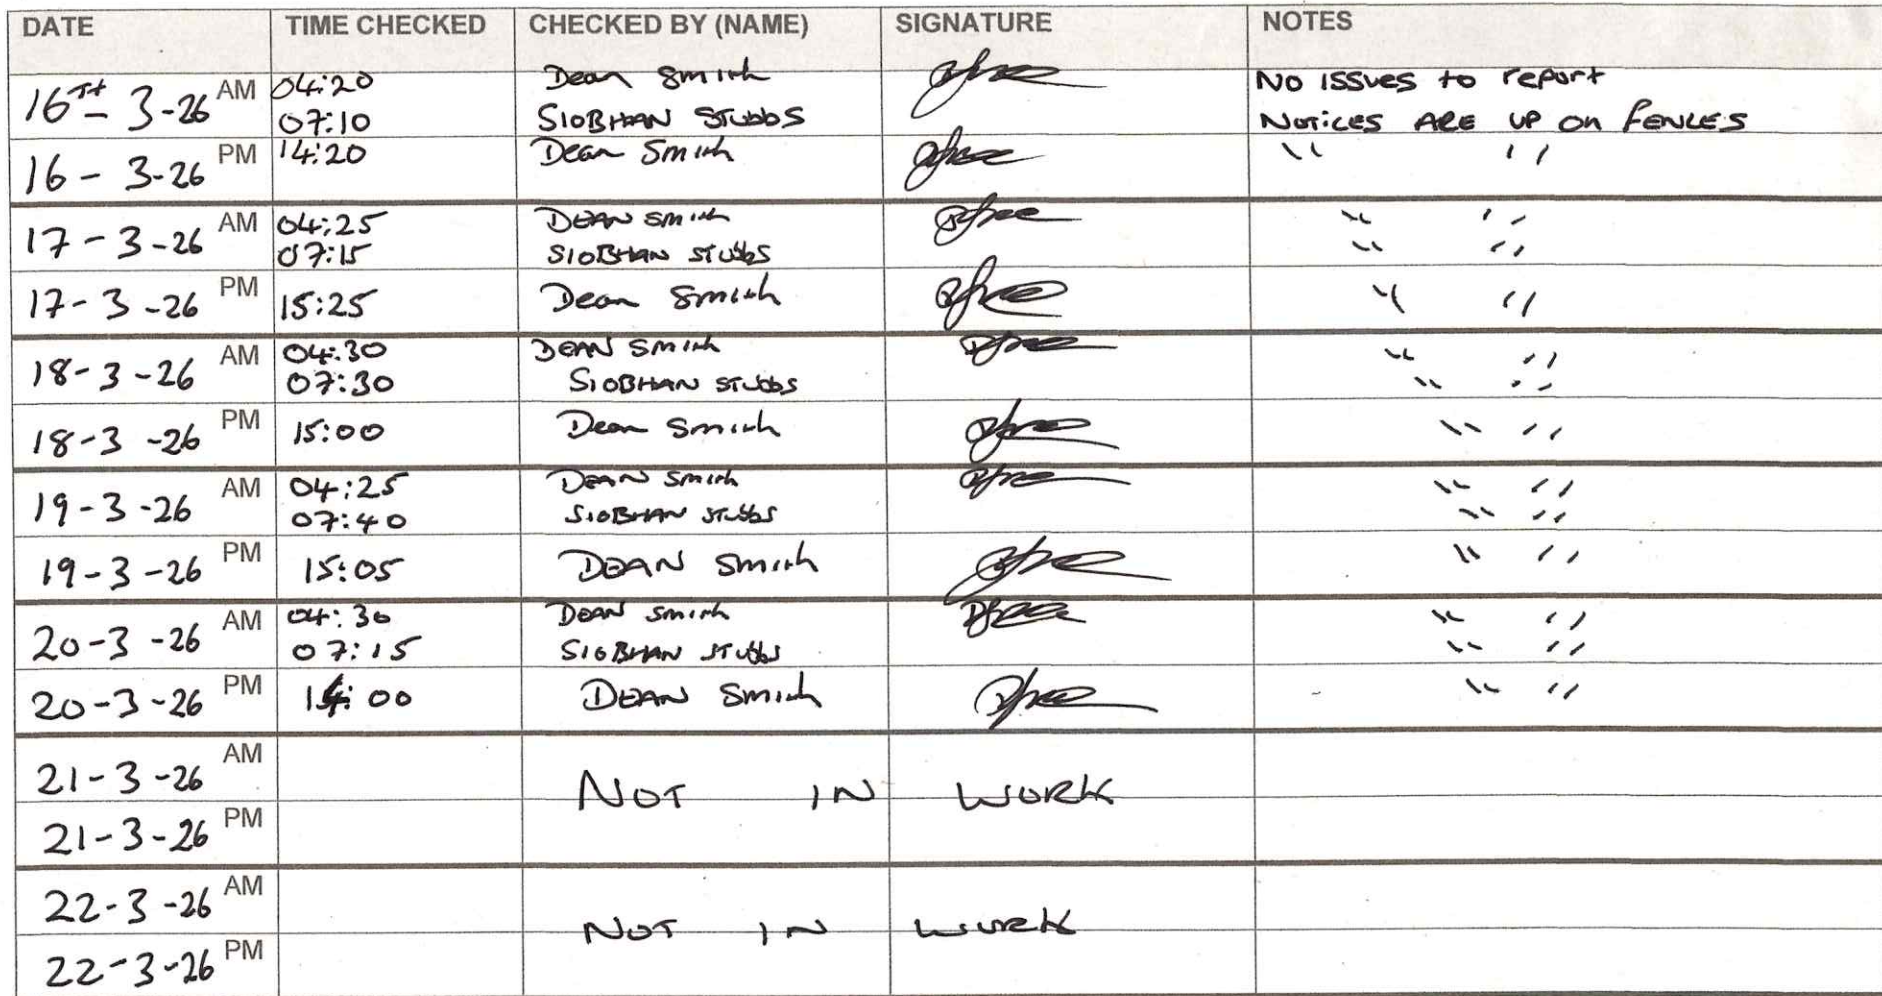 DATE TIME CHECKED CHECKED BY (NAME) SIGNATURE NOTES
16TH-3-26 AM 04:20 Dean Smith No issues to report
07:10 SIOBHAN STUBBS NOTICES ARE UP ON FENCES
16-3-26 PM 14:20 Dean Smith '' ''
17-3-26 AM 04:25 DEAN Smith '' ''
07:15 SIOBHAN STUBBS '' ''
17-3-26 PM 15:25 Dean Smith '' ''
18-3-26 AM 04:30 DEAN Smith '' ''
07:30 SIOBHAN STUBBS '' ''
18-3-26 PM 15:00 Dean Smith '' ''
19-3-26 AM 04:25 DEAN Smith '' ''
07:40 SIOBHAN STUBBS '' ''
19-3-26 PM 15:05 DEAN Smith '' ''
20-3-26 AM 04:30 DEAN Smith '' ''
07:15 SIOBHAN STUBBS '' ''
20-3-26 PM DEAN Smith '' ''
21-3-26 AM
NOT IN WORK
21-3-26 PM
22-3-26 AM
NOT IN WORK
22-3-26 PM